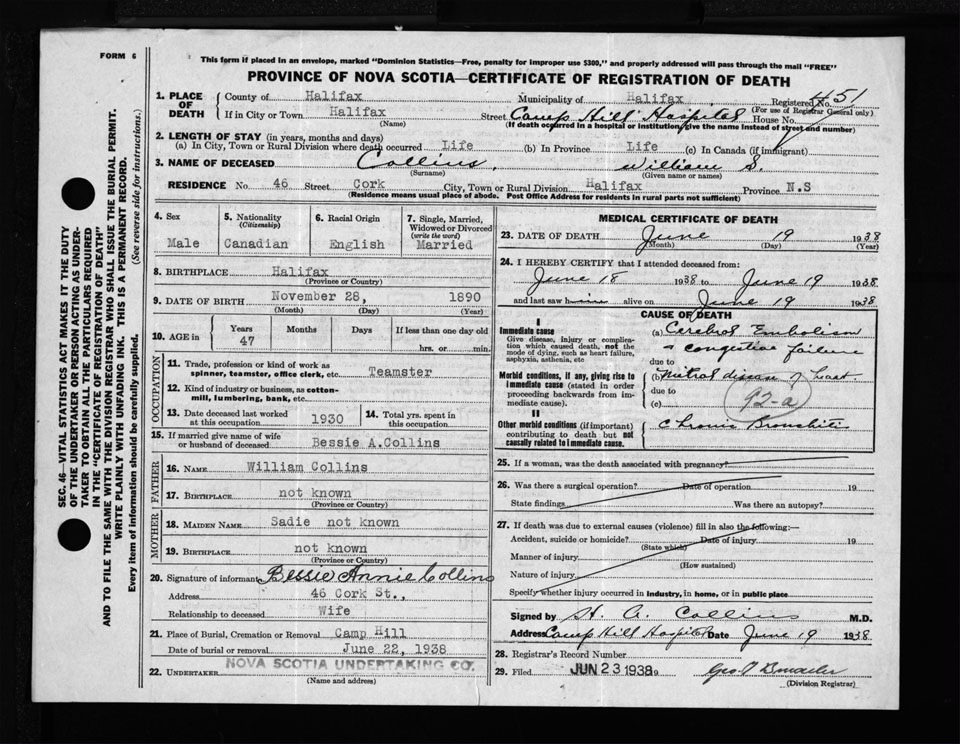 FORM 6
This form if placed in an envelope, marked "Dominion Statistics—Free, penalty for improper use $300," and properly addressed will pass through the mail "FREE"
PROVINCE OF NOVA SCOTIA—CERTIFICATE OF REGISTRATION OF DEATH
SEC. 46—VITAL STATISTICS ACT MAKES IT THE DUTY
OF THE UNDERTAKER OR PERSON ACTING AS UNDER-
TAKER TO OBTAIN ALL THE PARTICULARS REQUIRED
IN THE "CERTIFICATE OF REGISTRATION OF DEATH"
AND TO FILE THE SAME WITH THE DIVISION REGISTRAR WHO SHALL ISSUE THE BURIAL PERMIT.
WRITE PLAINLY WITH UNFADING INK. THIS IS A PERMANENT RECORD.
Every item of information should be carefully supplied. (See reverse side for instructions.)
1. PLACE OF DEATH
County of Halifax Municipality of Halifax Registered No. 451
(For use of Registrar General only)
If in City or Town Halifax Street Camp Hill Hospital House No.
(Name) (If death occurred in a hospital or institution, give the name instead of street and number)
2. LENGTH OF STAY (in years, months and days)
(a) In City, Town or Rural Division where death occurred Life (b) In Province Life (c) In Canada (if immigrant)
3. NAME OF DECEASED Collins, William S.
(Surname) (Given name or names)
RESIDENCE No. 46 Street Cork City, Town or Rural Division Halifax Province N.S
(Residence means usual place of abode. Post Office Address for residents in rural parts not sufficient)
4. Sex
Male
5. Nationality
(Citizenship)
Canadian
6. Racial Origin
English
7. Single, Married, Widowed or Divorced
(write the word)
Married
8. BIRTHPLACE Halifax
(Province or Country)
9. DATE OF BIRTH November 28, 1890
(Month) (Day) (Year)
10. AGE in Years Months Days If less than one day old
47 hrs. or min.
OCCUPATION
11. Trade, profession or kind of work as
spinner, teamster, office clerk, etc. Teamster
12. Kind of industry or business, as cotton-
mill, lumbering, bank, etc.
13. Date deceased last worked
at this occupation 1930
14. Total yrs. spent in
this occupation
15. If married give name of wife
or husband of deceased Bessie A.Collins
FATHER
16. NAME William Collins
17. BIRTHPLACE not known
(Province or Country)
MOTHER
18. MAIDEN NAME Sadie not known
19. BIRTHPLACE not known
(Province or Country)
20. Signature of informant Bessie Annie Collins
Address 46 Cork St.,
Relationship to deceased Wife
21. Place of Burial, Cremation or Removal Camp Hill
Date of burial or removal June 22, 1938
22. UNDERTAKER NOVA SCOTIA UNDERTAKING CO.
(Name and address)
MEDICAL CERTIFICATE OF DEATH
23. DATE OF DEATH June 19 1938
(Month) (Day) (Year)
24. I HEREBY CERTIFY that I attended deceased from:
June 18 1938 to June 19 1938
and last saw him alive on June 19 1938
CAUSE OF DEATH
I
Immediate cause
Give disease, injury or complica-
tion which caused death, not the
mode of dying, such as heart failure,
asphyxia, asthenia, etc
(a) Cerebral Embolism
& congestive failure
due to
Morbid conditions, if any, giving rise to
immediate cause (stated in order
proceeding backwards from im-
mediate cause).
(b) Mitral disease of heart
due to
(c)
92-a
II
Other morbid conditions (if important)
contributing to death but not
causally related to immediate cause.
Chronic Bronchitis
25. If a woman, was the death associated with pregnancy?
26. Was there a surgical operation? Date of operation 19
State findings Was there an autopsy?
27. If death was due to external causes (violence) fill in also the following:—
Accident, suicide or homicide? Date of injury 19
(State which)
Manner of injury
(How sustained)
Nature of injury
Specify whether injury occurred in industry, in home, or in public place
Signed by H. A. Collins M.D.
Address Camp Hill Hospital Date June 19 1938.
28. Registrar's Record Number
29. Filed JUN 23 1938 9
(Division Registrar)